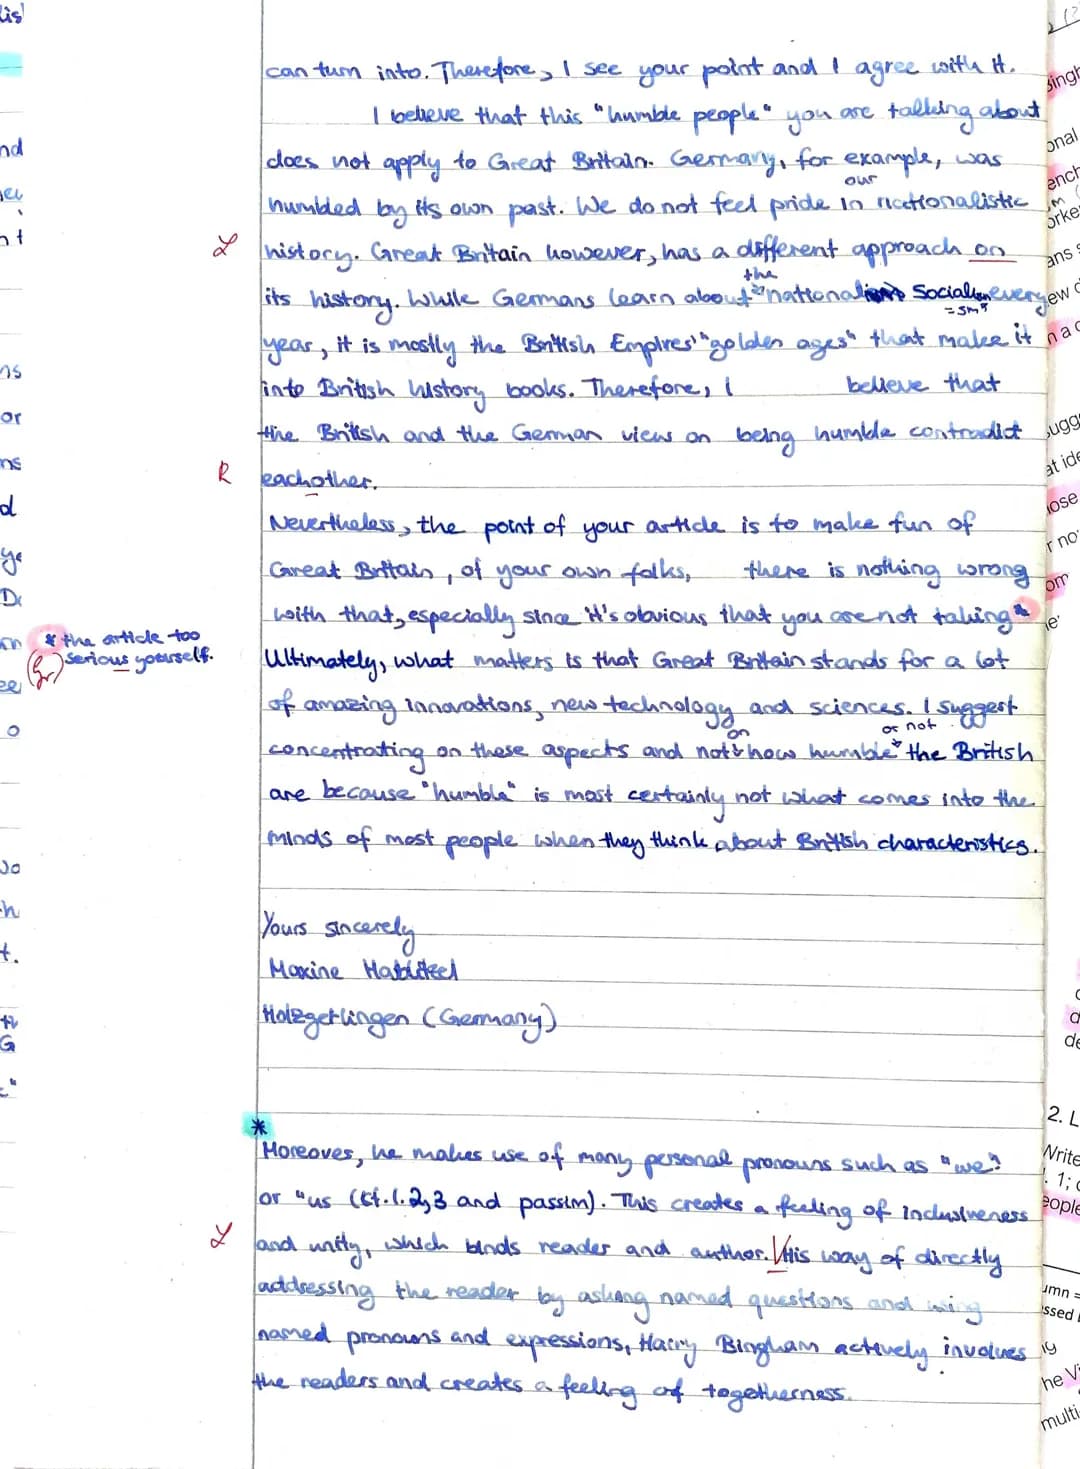 can turn into. Therefore, I see your point and I agree with it.
I believe that this "humble people" you are talking about
does not apply to Great Britain. Germany, for example, was
humbled by its own past. We do not feel pride in our nationalistic
L history. Great Britain however, has a different approach on
its history. While Germans learn about the "national Socialism every
= sm"
year, it is mostly the British Empires' "golden ages" that make it
into British history books. Therefore, I believe that
the British and the German views on being humble contradict
R eachother.
Nevertheless, the point of your article is to make fun of
Great Britain, of your own folks, there is nothing wrong
with that, especially since it's obvious that you are not taking *
* the article too
serious yourself.
(Gr)
Ultimately, what matters is that Great Britain stands for a lot
of amazing innovations, new technology and sciences. I suggest
concentrating on these aspects and not on how humble or not the British
are because "humble" is most certainly not what comes into the
minds of most people when they think about British characteristics.
Yours sincerely
Maxine
Holzgerlingen (Germany)
*
Moreover, he makes use of many personal pronouns such as "we"
or "us (cf. l. 2, 3 and passim). This creates a feeling of inclusiveness
L and unity, which binds reader and author. His way of directly
addressing the reader by asking named questions and using
named pronouns and expressions, Harry Bingham actively involves
the readers and creates a feeling of togetherness.
2. L
Write